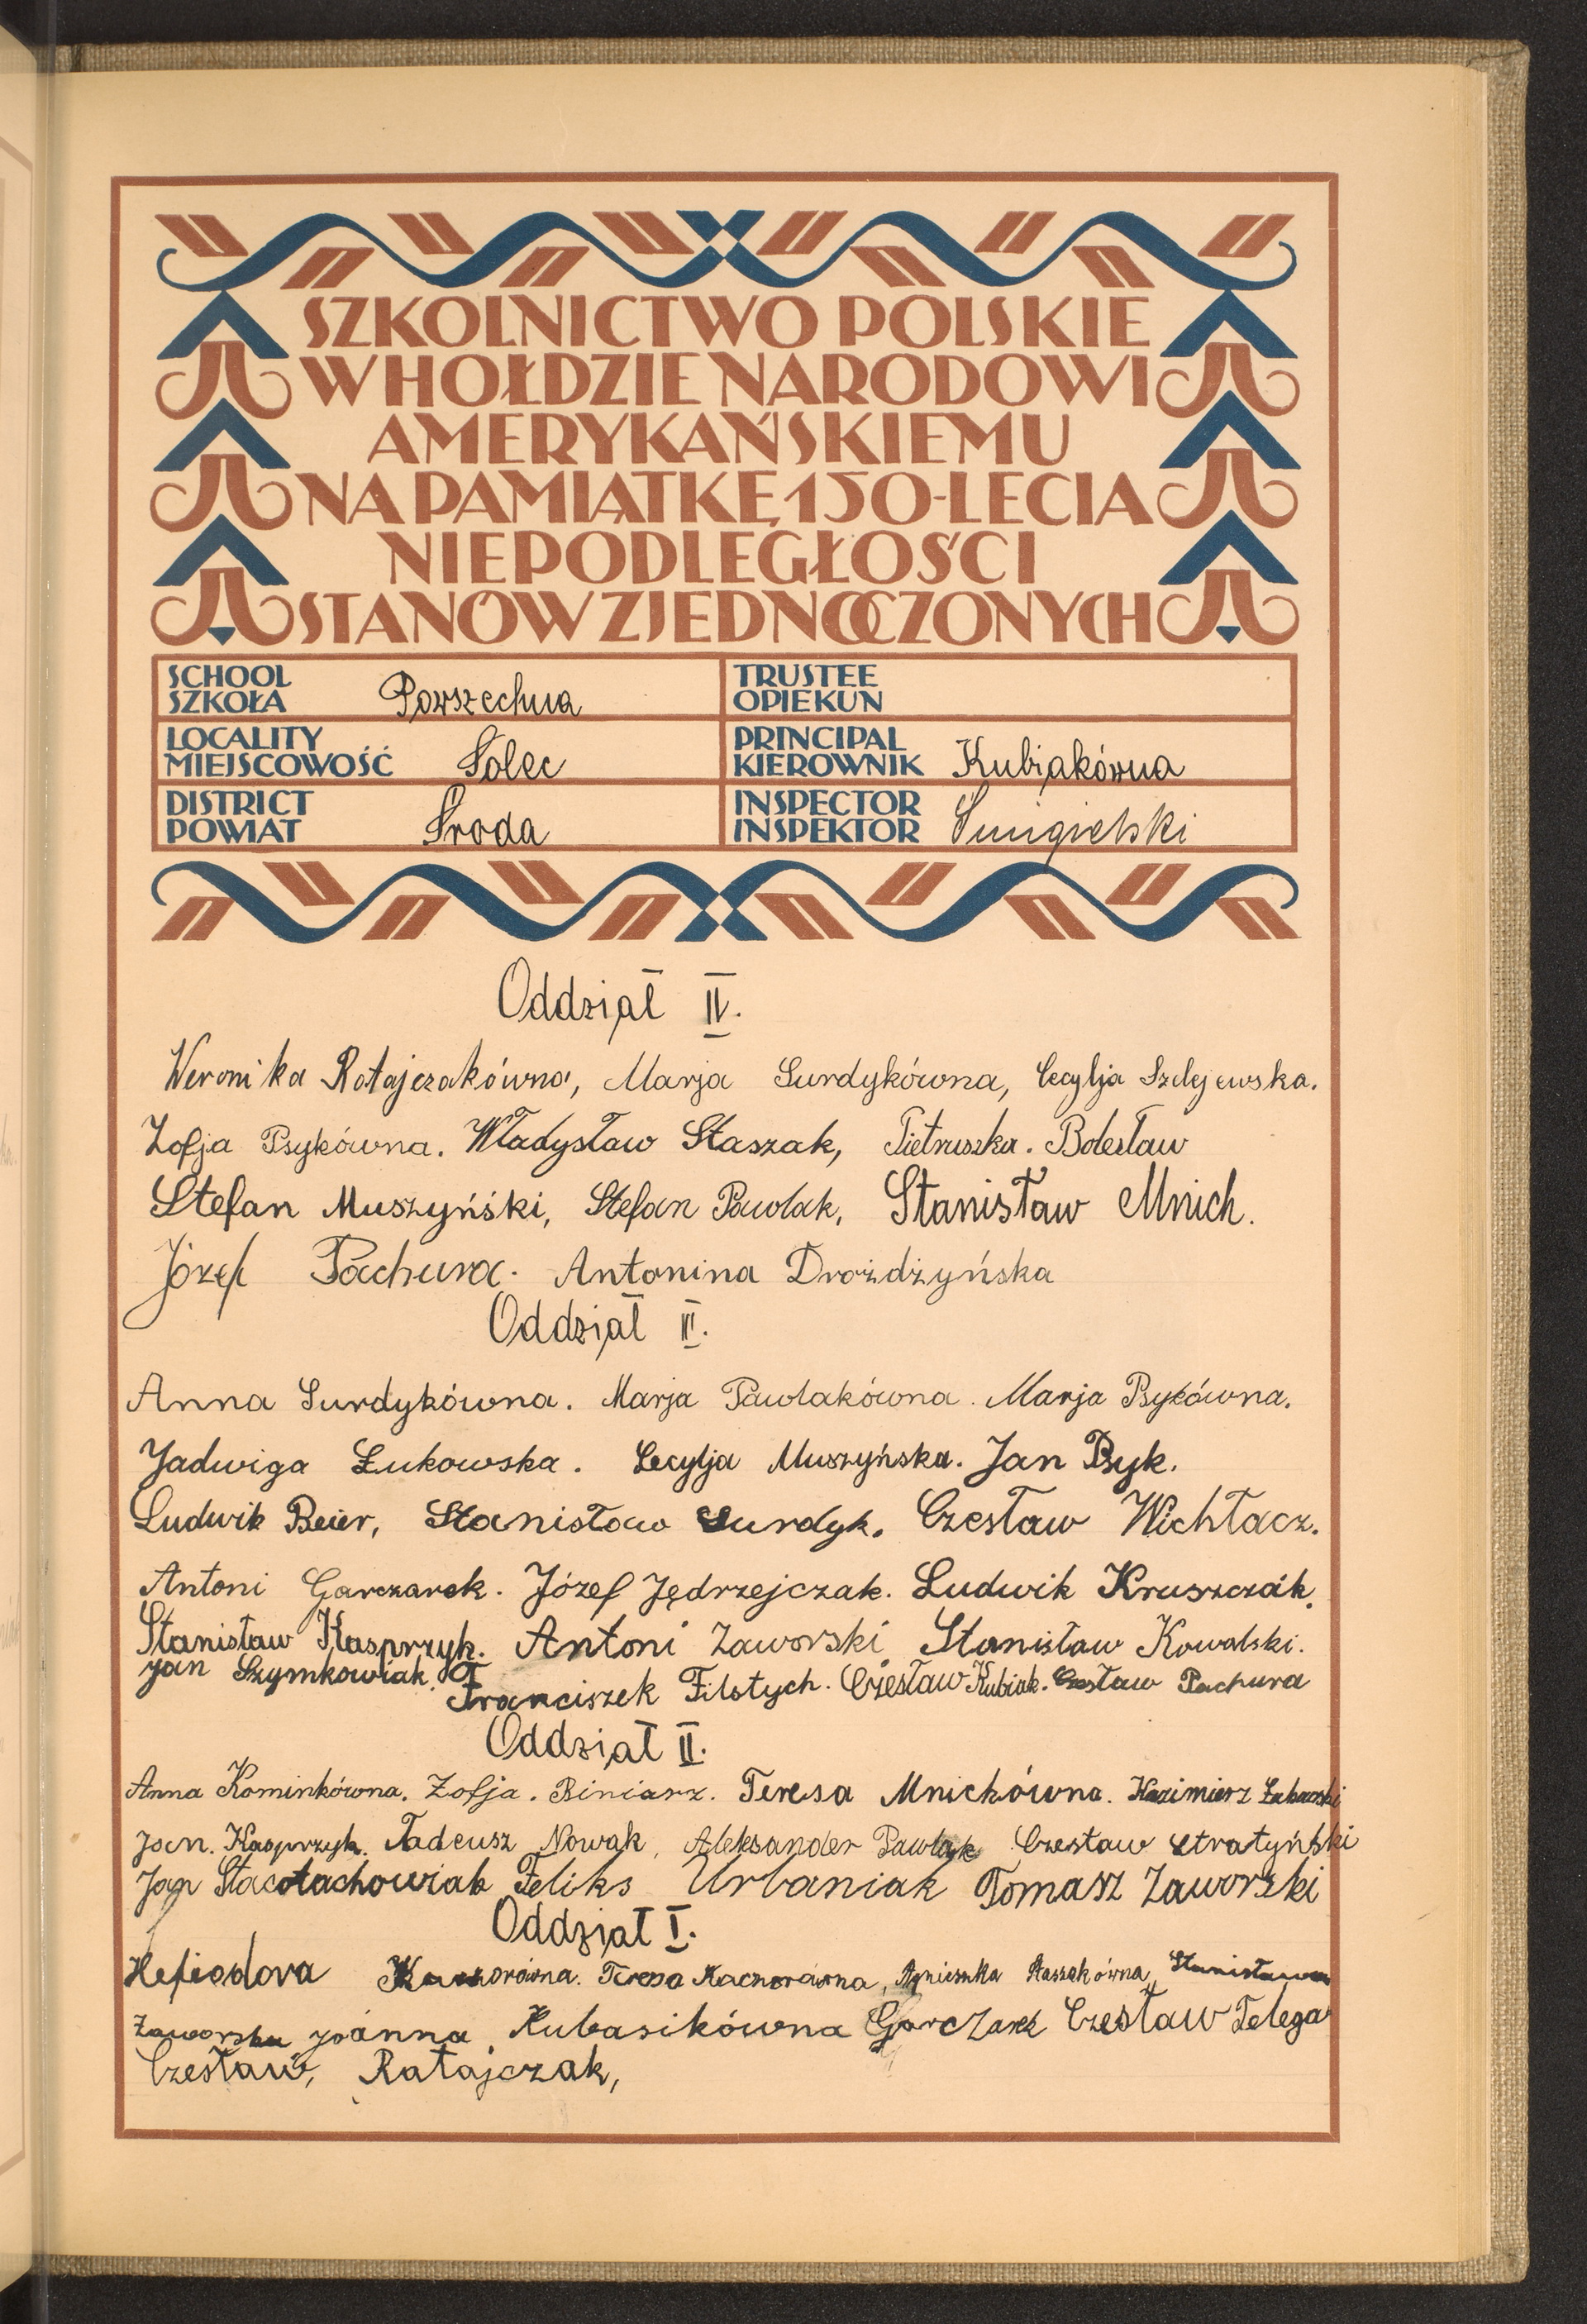 SZKOLNICTWO POLSKIE
W HOŁDZIE NARODOWI
AMERYKAŃSKIEMU
NA PAMIĄTKĘ 150-LECIA
NIEPODLEGŁOŚCI
STANÓW ZJEDNOCZONYCH
SCHOOL
SZKOŁA Powszechna
TRUSTEE
OPIEKUN
LOCALITY
MIEJSCOWOŚĆ Solec
PRINCIPAL
KIEROWNIK Kubiakówna
DISTRICT
POWIAT Środa
INSPECTOR
INSPEKTOR Śmigielski
Oddział IV.
Weronika Ratajczakówna, Marja Surdykówna, Cecylja Szelejewska.
Zofja Psykówna. Władysław Staszak, Pietruszka. Bolesław
Stefan Muszyńśki, Stefan Pawlak, Stanisław Mnich.
Józef Pachura. Antonina Drożdżyńska
Oddział III.
Anna Surdykówna. Marja Pawlakówna. Marja Psykówna.
Jadwiga Łukowska. Cecylja Muszyńska. Jan Psyk.
Ludwik Beier, Stanisław Surdyk. Czesław Wichłacz.
Antoni Garczarek. Józef Jędrzejczak. Ludwik Kruszczak.
Stanisław Kasprzyk. Antoni Zaworski Stanisław Kowalski.
Jan Szymkowiak. Franciszek Filstych. Czesław Kubiak. Czesław Pachura
Oddział II.
Anna Kominkówna. Zofja. Biniarz. Teresa Mnichówna. Kazimierz
Jan. Kasprzyk. Tadeusz Nowak, Aleksander Pawlak Czesław Stratyńśki
Jan Feliks Urbaniak Tomasz Zaworski
Oddział I.
Kaczorówna. Teresa Kaczorówna, Agnieszka Staszakówna, Stanisława
Zaworska Joanna Kubasikówna Garczarek Czesław Telega
Czesław, Ratajczak,